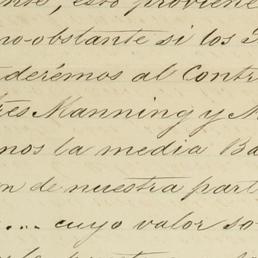 nte, esto proviene
no-obstante si los
derémos al Contr
res Manning y M
mos la media Ba
n de nuestra part
.... cuyo valor so